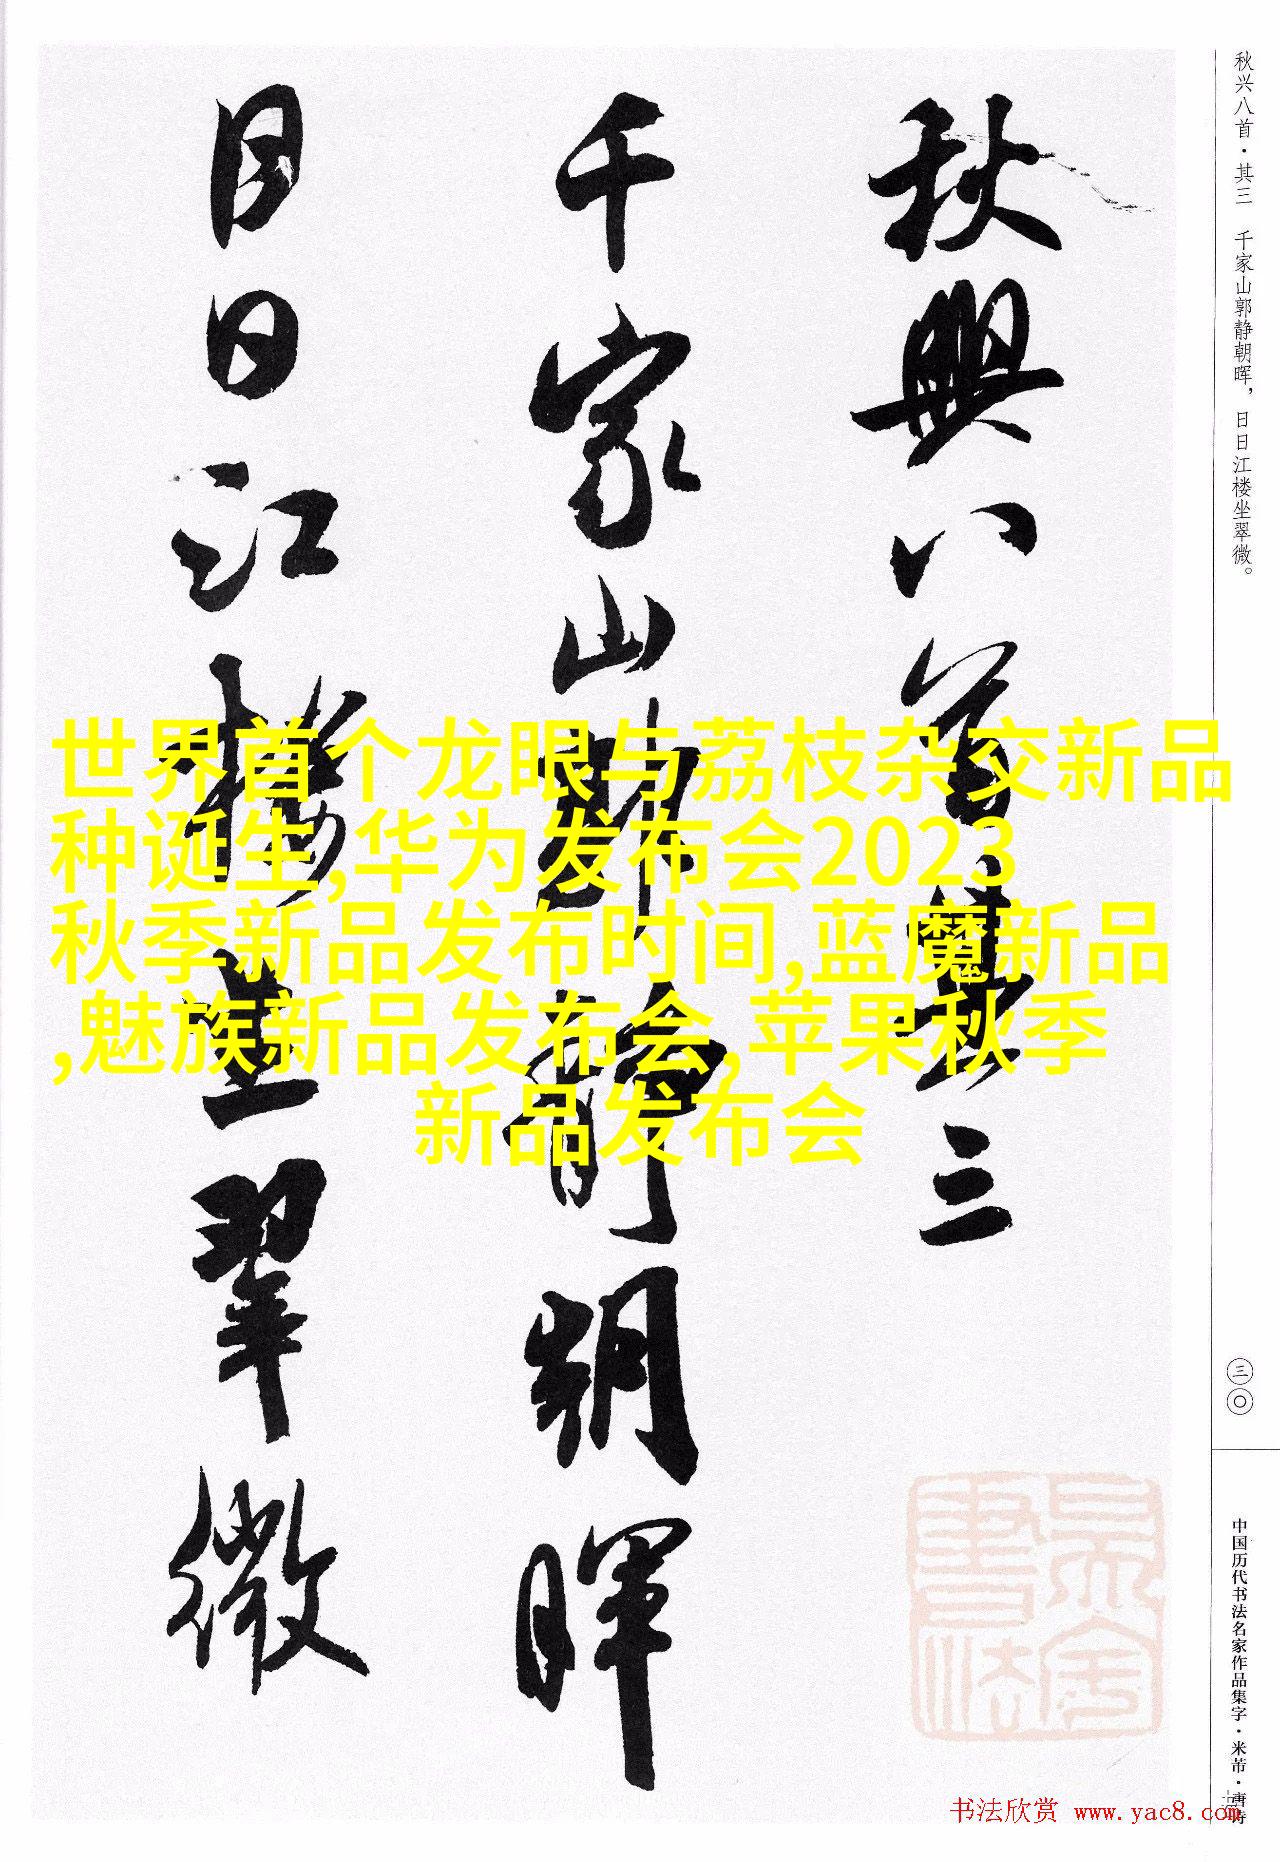 秋兴八首·其三 千家山郭静朝晖，日日江楼坐翠微。
秋興八首其三
千家山郭靜朝暉
日日江樓坐翠微
世界首个龙眼与荔枝杂交新品
种诞生,华为发布会2023
秋季新品发布时间,蓝魔新品
,魅族新品发布会,苹果秋季
新品发布会
三〇
中国历代书法名家作品集字·米芾·唐诗
书法欣赏 www.yac8.com